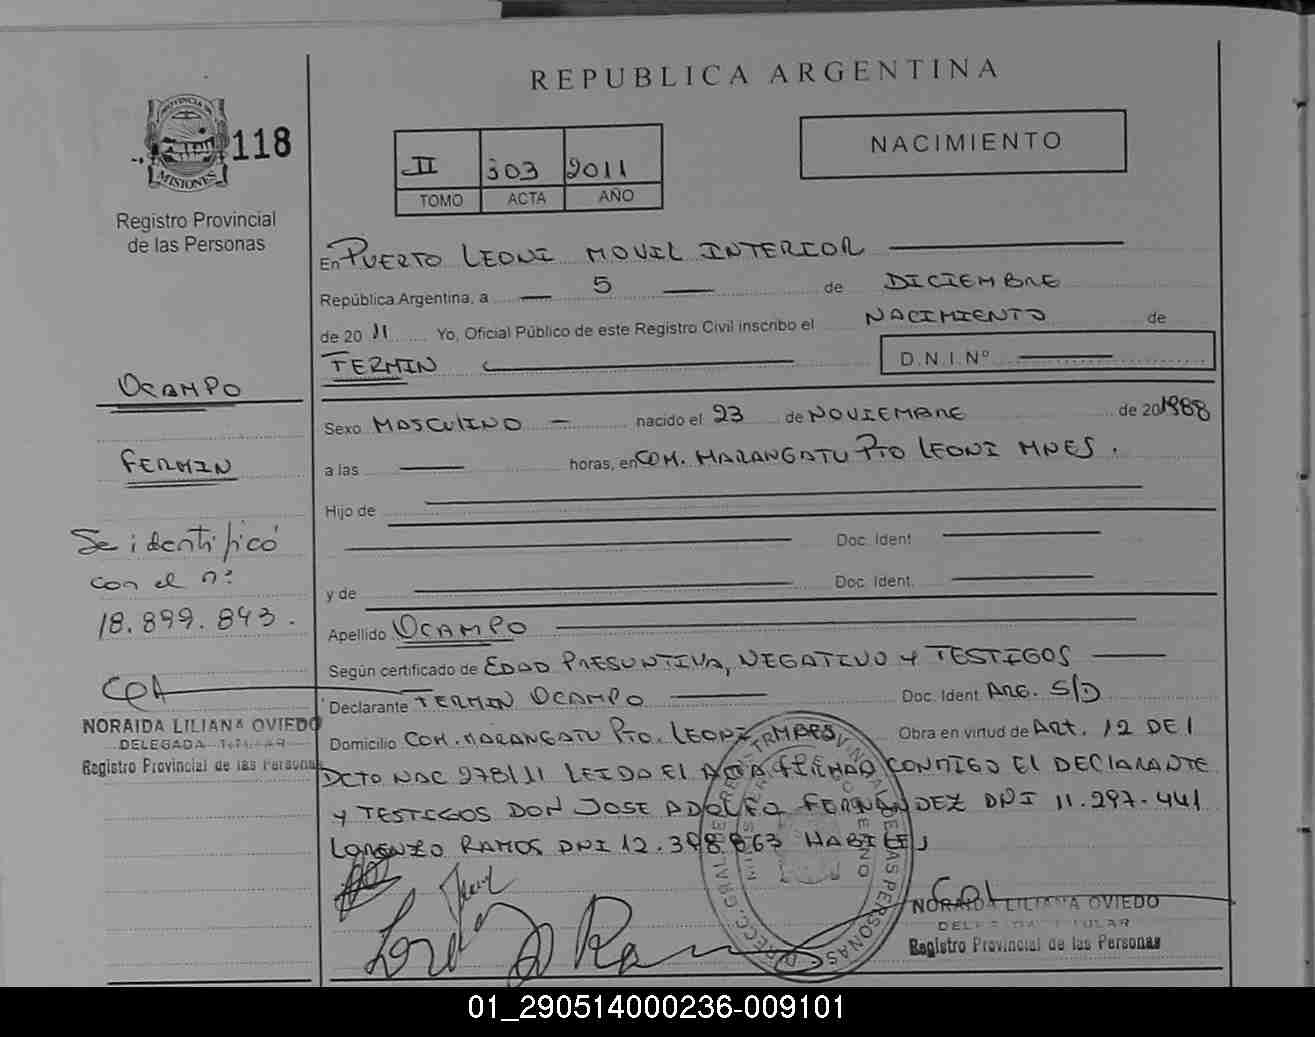 REPUBLICA ARGENTINA
PROVINCIA DE
MISIONES
118
Registro Provincial
de las Personas
II 303 2011
TOMO ACTA AÑO
NACIMIENTO
En PUERTO LEONI MOVIL INTERIOR
República Argentina, a 5 de DICIEMBRE
de 20 11 Yo, Oficial Público de este Registro Civil inscribo el NACIMIENTO de
FERMIN D.N.I.Nº
OCAMPO
FERMIN
Se identificó
con el nº
18.899.893.
NORAIDA LILIANA OVIEDO
DELEGADA TITULAR
Registro Provincial de las Personas
Sexo MASCULINO nacido el 23 de NOVIEMBRE de 20 1988
a las horas, en COM. MARANGATU PTO LEONI MNES.
Hijo de
Doc. Ident
y de Doc. Ident.
Apellido OCAMPO
Según certificado de EDAD PRESUNTIVA, NEGATIVO Y TESTIGOS
Declarante FERMIN OCAMPO Doc. Ident. ARG. S/D
Domicilio COM. MARANGATU PTO. LEONI MNES Obra en virtud de ART. 12 DEL
DCTO NAC 278/11 LEIDA EL ACTA FIRMAN CONMIGO EL DECLARANTE
Y TESTIGOS DON JOSE ADOLFO FERNANDEZ DNI 11.297.441
LORENZO RAMOS DNI 12.398.863 HABILES
NORAIDA LILIANA OVIEDO
DELEGADA TITULAR
Registro Provincial de las Personas
01_290514000236-009101